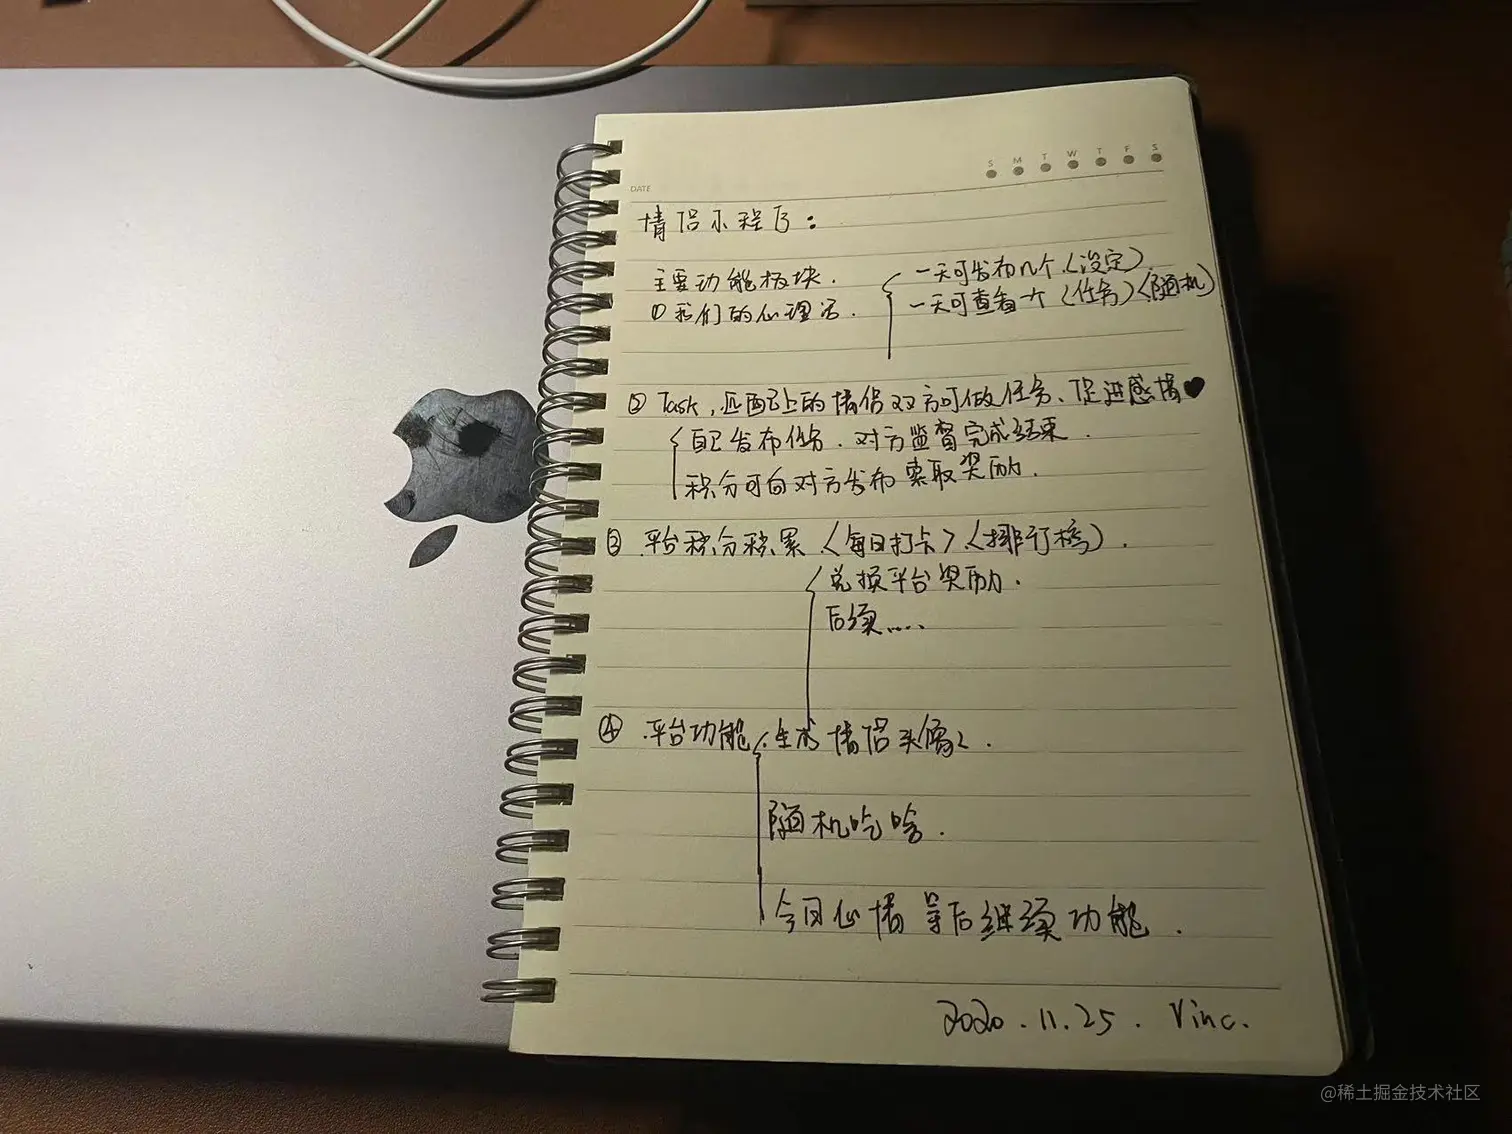 DATE
S M T W T F S
情侣小程序：
主要功能板块.
一天可发布几个(设定)
①我们的心理话.
一天可查看一个(任务)(随机)
② Task，匹配上的情侣双方可做任务、促进感情♥
自己发布任务.对方监督完成结果.
积分可向对方发布索取奖励.
③ 平台积分积累.〈每日打卡〉.〈排行榜〉.
兑换平台奖励.
后续....
④ .平台功能.生成情侣头像.
随机吃啥.
今日心情等后继续功能.
2020.11.25. Vinc.
@稀土掘金技术社区